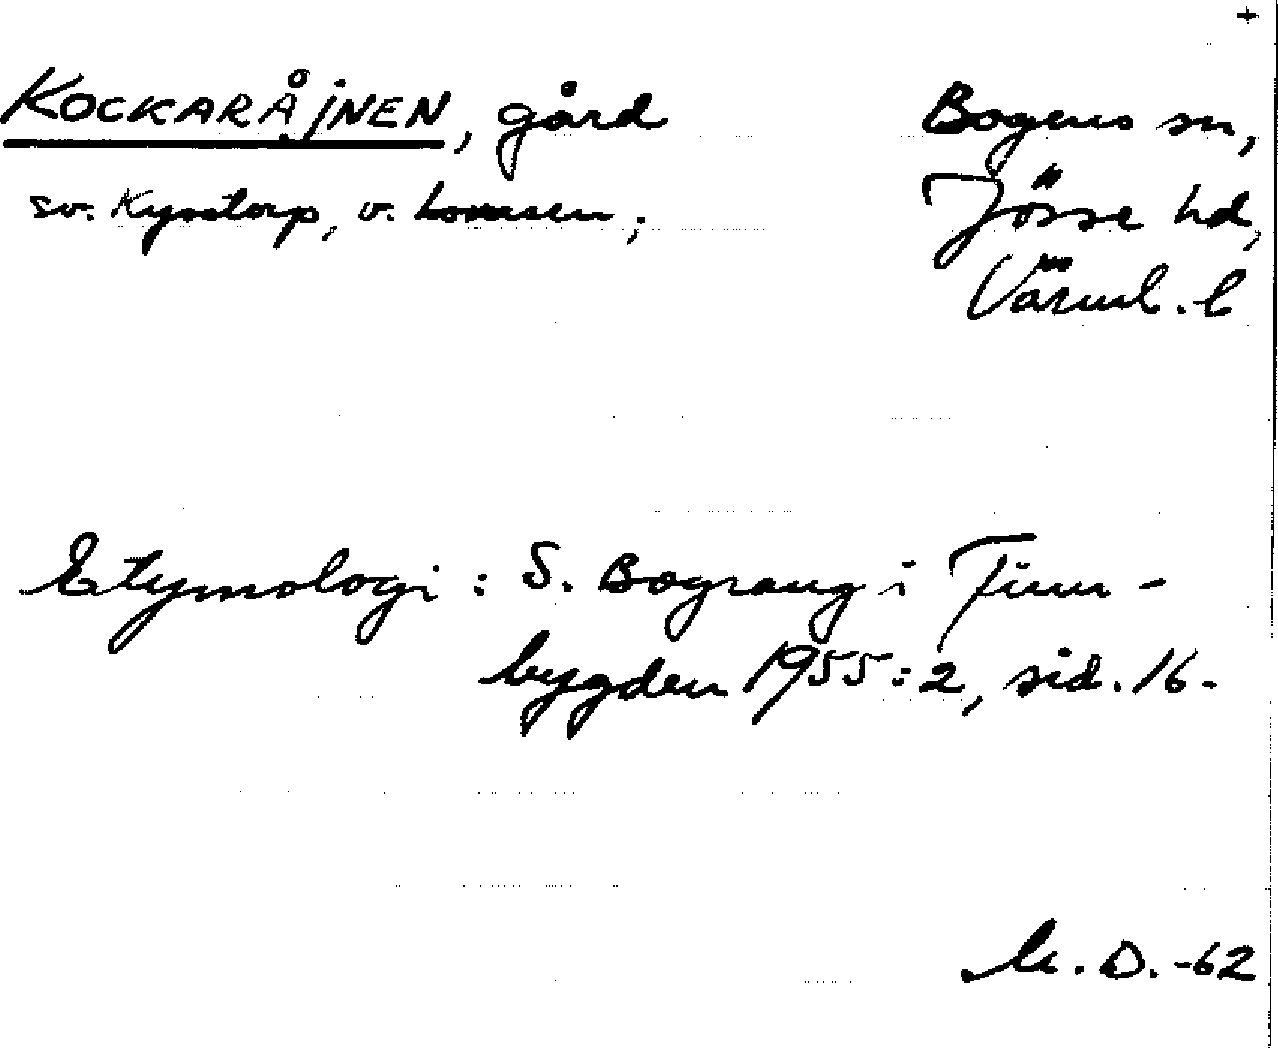 +
KOCKARÅJNEN, gård
sv. Kynstorp, v. Lomsen;
Bogens sn,
Jösse hd,
Värml. l
Etymologi: S. Bograng i Finn-
bygden 1955:2, sid. 16.
D. -62